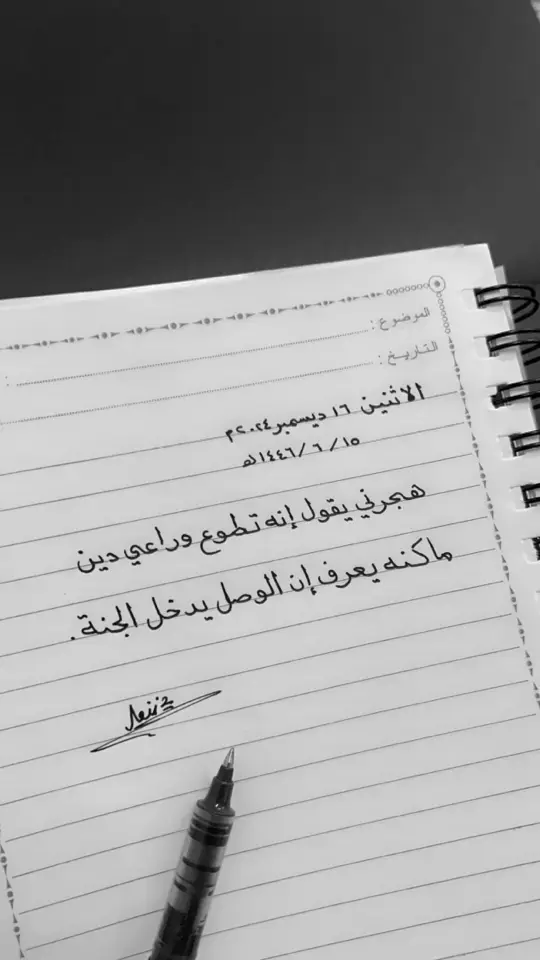 الموضوع :
التاريخ :
الاثنين ١٦ ديسمبر ٢٠٢٤م
١٥/ ٦ /١٤٤٦هـ
هجرني يقول إنه تطوع وراعي دين
ماكنه يعرف إن الوصل يدخل الجنة .